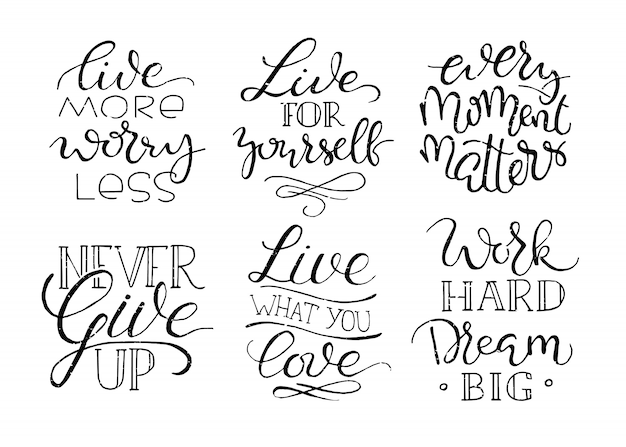 live
MORE
worry
LESS
Live
FOR
yourself
every
Moment
Matters
NEVER
Give
UP
Live
WHAT YOU
love
Work
HARD
Dream
• BIG •